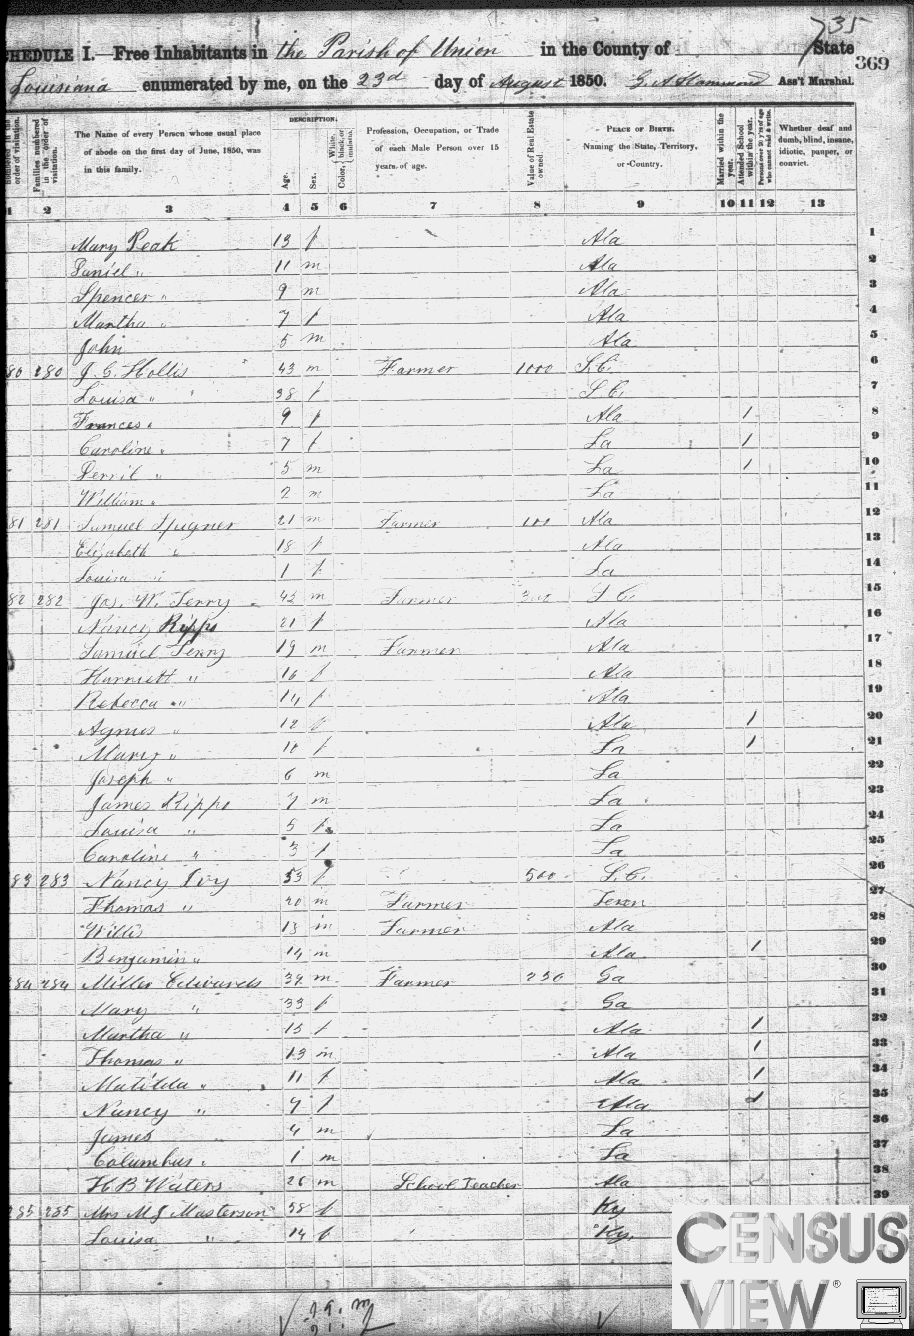 735
CHEDULE I.—Free Inhabitants in the Parish of Union in the County of State
369
Louisiana enumerated by me, on the 23d day of August 1850. G. A. Hammond Ass't Marshal.
order of visitation.
Families numbered in the order of visitation.
The Name of every Person whose usual place of abode on the first day of June, 1850, was in this family.
DESCRIPTION.
Age.
Sex.
Color, White, black, or mulatto.
Profession, Occupation, or Trade of each Male Person over 15 years of age.
Value of Real Estate owned.
PLACE OF BIRTH. Naming the State, Territory, or Country.
Married within the year.
Attended School within the year.
Persons over 20 y'rs of age who cannot read & write.
Whether deaf and dumb, blind, insane, idiotic, pauper, or convict.
1 2 3 4 5 6 7 8 9 10 11 12 13
Mary Peak 13 f Ala 1
Daniel " 11 m Ala 2
Spencer " 9 m Ala 3
Martha " 7 f Ala 4
John 5 m Ala 5
80 280 J. C. Hollis 43 m Farmer 1000 S.C. 6
Louisa " 38 f S.C. 7
Frances " 9 f Ala 1 8
Caroline " 7 f La 1 9
" 5 m La 1 10
William " 2 m La 11
81 281 Samuel 21 m Farmer 100 Ala 12
Elizabeth " 18 f Ala 13
Louisa " 1 f La 14
82 282 Jas. W. Terry 43 m Farmer 300 S C. 15
Nancy Ripps 21 f Ala 16
Samuel Terry 19 m Farmer Ala 17
Harriett " 16 f Ala 18
Rebecca " 14 f Ala 19
" 12 f Ala 1 20
Mary " 10 f La 1 21
Joseph " 6 m La 22
James Ripps 7 m La 23
Louisa " 5 f La 24
Caroline " 3 f La 25
83 283 Nancy Ivy 53 f 500 S.C. 26
Thomas " 20 m Farmer 27
Willis m Farmer Ala 28
Benjamin " 14 m Ala 1 29
284 284 Miller Edwards m Farmer 250 Ga 30
Mary " 33 f Ga 31
Martha " 15 f Ala 1 32
Thomas " 13 m Ala 1 33
Matilda " 11 f Ala 1 34
Nancy " f Ala 1 35
James 4 m La 36
Columbus " 1 m La 37
H B Waters 26 m School Teacher Ala 38
285 285 Mrs M J Masterson f Ky 39
Louisa " 14 f Ky.
CENSUS VIEW ®